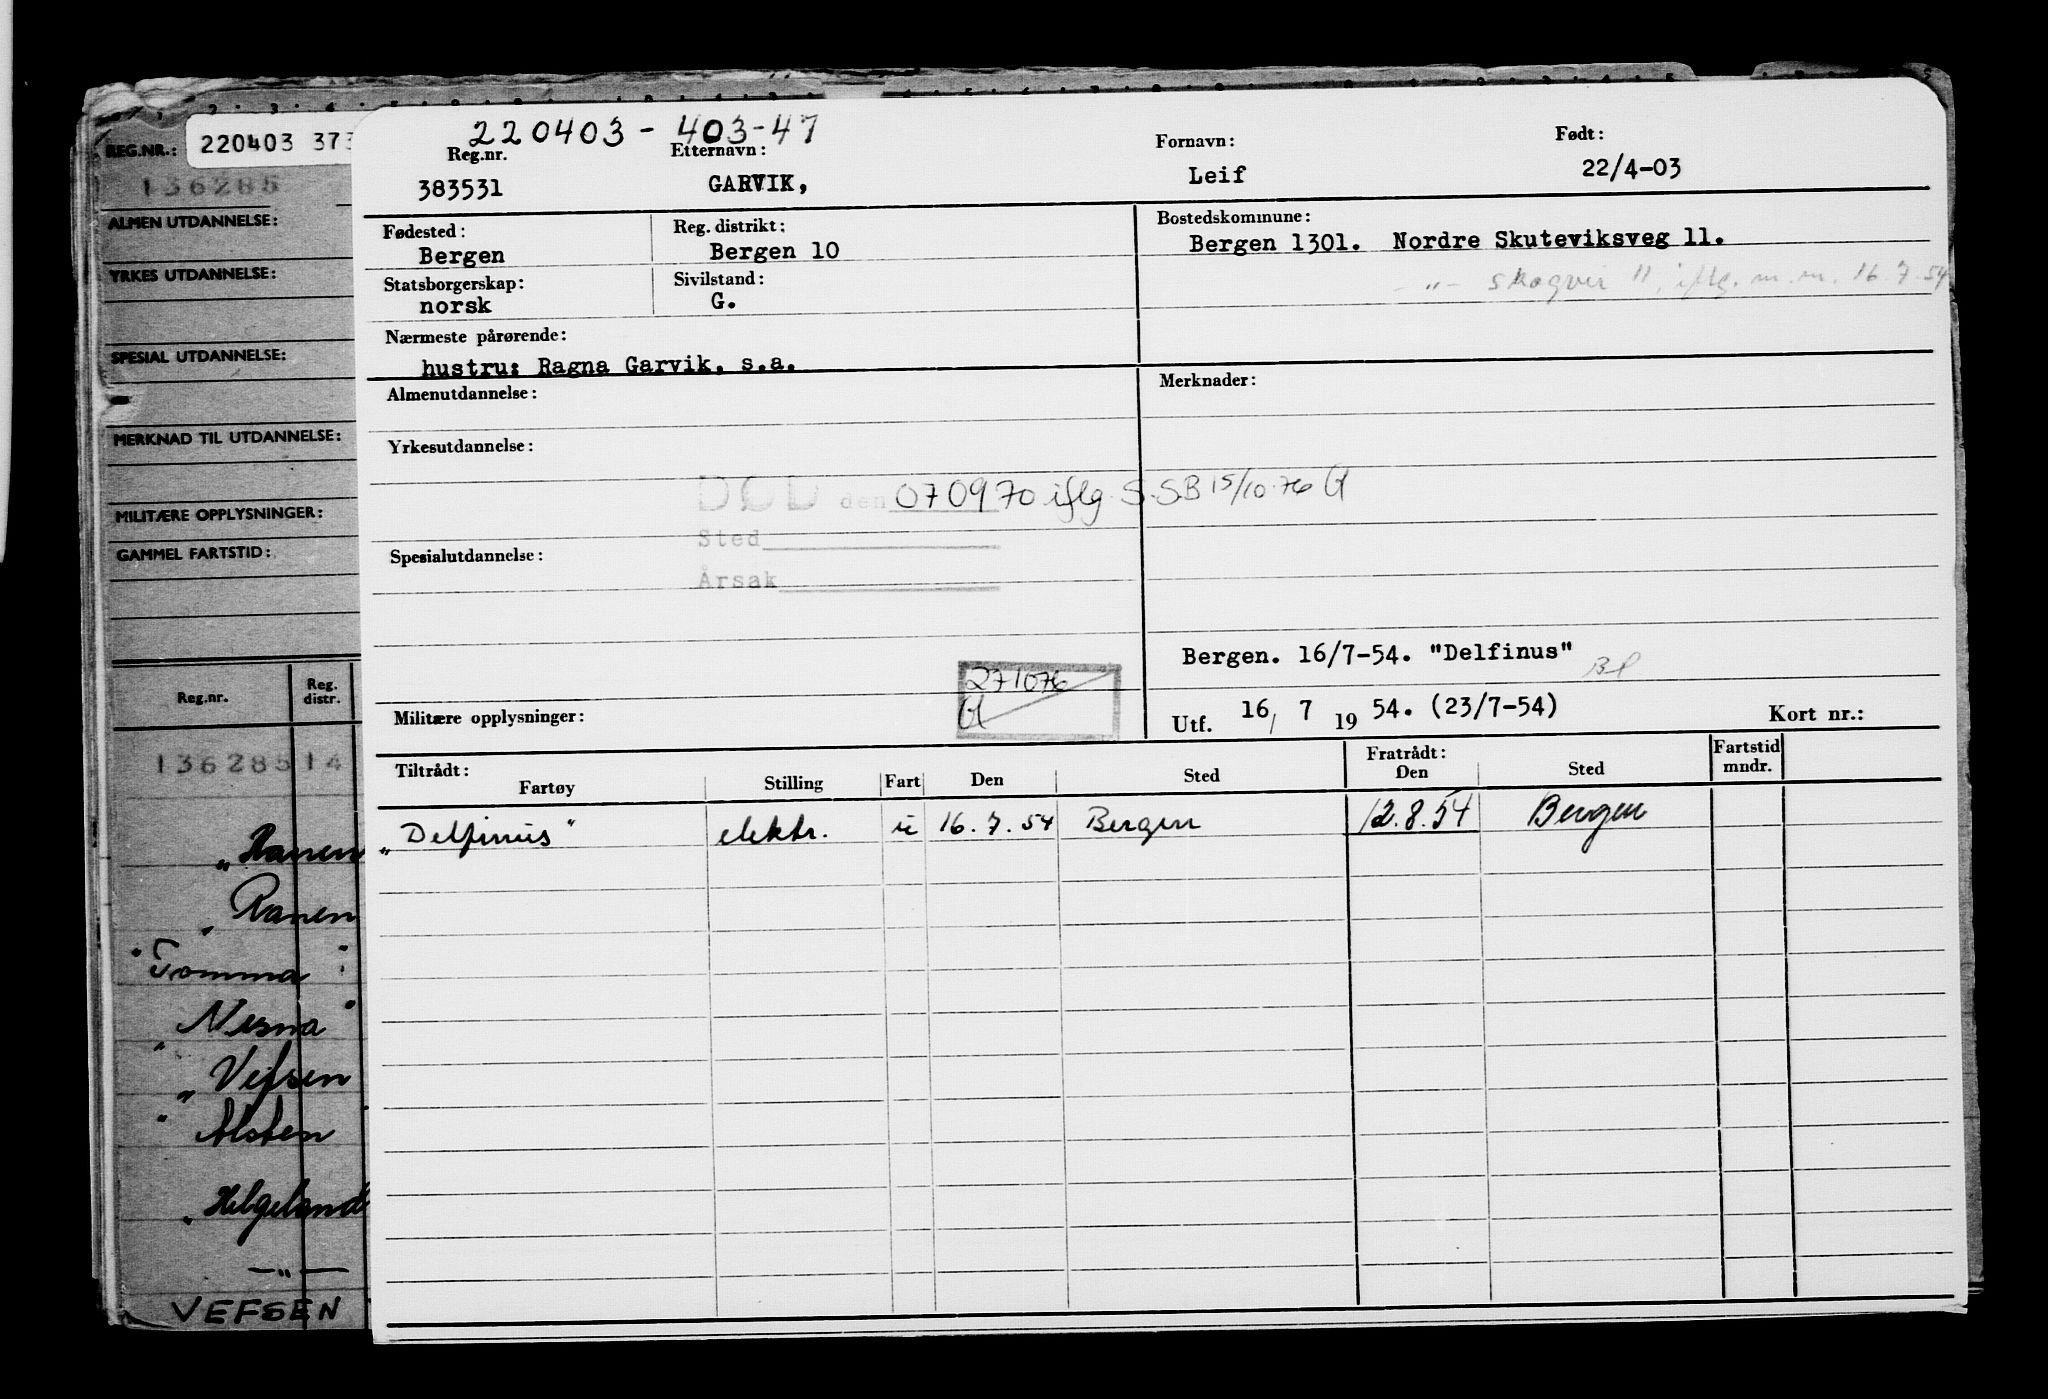 REG.NR.: 220403 373
136285
ALMEN UTDANNELSE:
YRKES UTDANNELSE:
SPESIAL UTDANNELSE:
MERKNAD TIL UTDANNELSE:
MILITÆRE OPPLYSNINGER:
GAMMEL FARTSTID:
Reg.nr. Reg. distr.
136285 14
„Ranen
„ Ranen
"Tomma"
„Nesna"
„Vefsen
"Alsten
„Helgeland
—„—
VEFSEN
220403 - 403-47
Reg.nr. Etternavn: Fornavn: Født:
383531 GARVIK, Leif 22/4-03
Fødested: Reg. distrikt: Bostedskommune:
Bergen Bergen 10 Bergen 1301. Nordre Skuteviksveg 11.
Statsborgerskap: Sivilstand:
—„— Skogvei 11, iflg. m.m. 16.7.54
norsk G.
Nærmeste pårørende:
hustru: Ragna Garvik, s.a.
Almenutdannelse: Merknader:
Yrkesutdannelse:
DØD den 070970 iflg. S.S.B 15/10.76
Sted
Spesialutdannelse:
Årsak
Bergen. 16/7-54. "Delfinus"
271076
Militære opplysninger:
Utf. 16/ 7 19 54. (23/7-54) Kort nr.:
Tiltrådt: Fratrådt: Fartstid mndr.
Fartøy Stilling Fart Den Sted Den Sted
„Delfinus" elektr. u 16.7.54 Bergen 12.8.54 Bergen